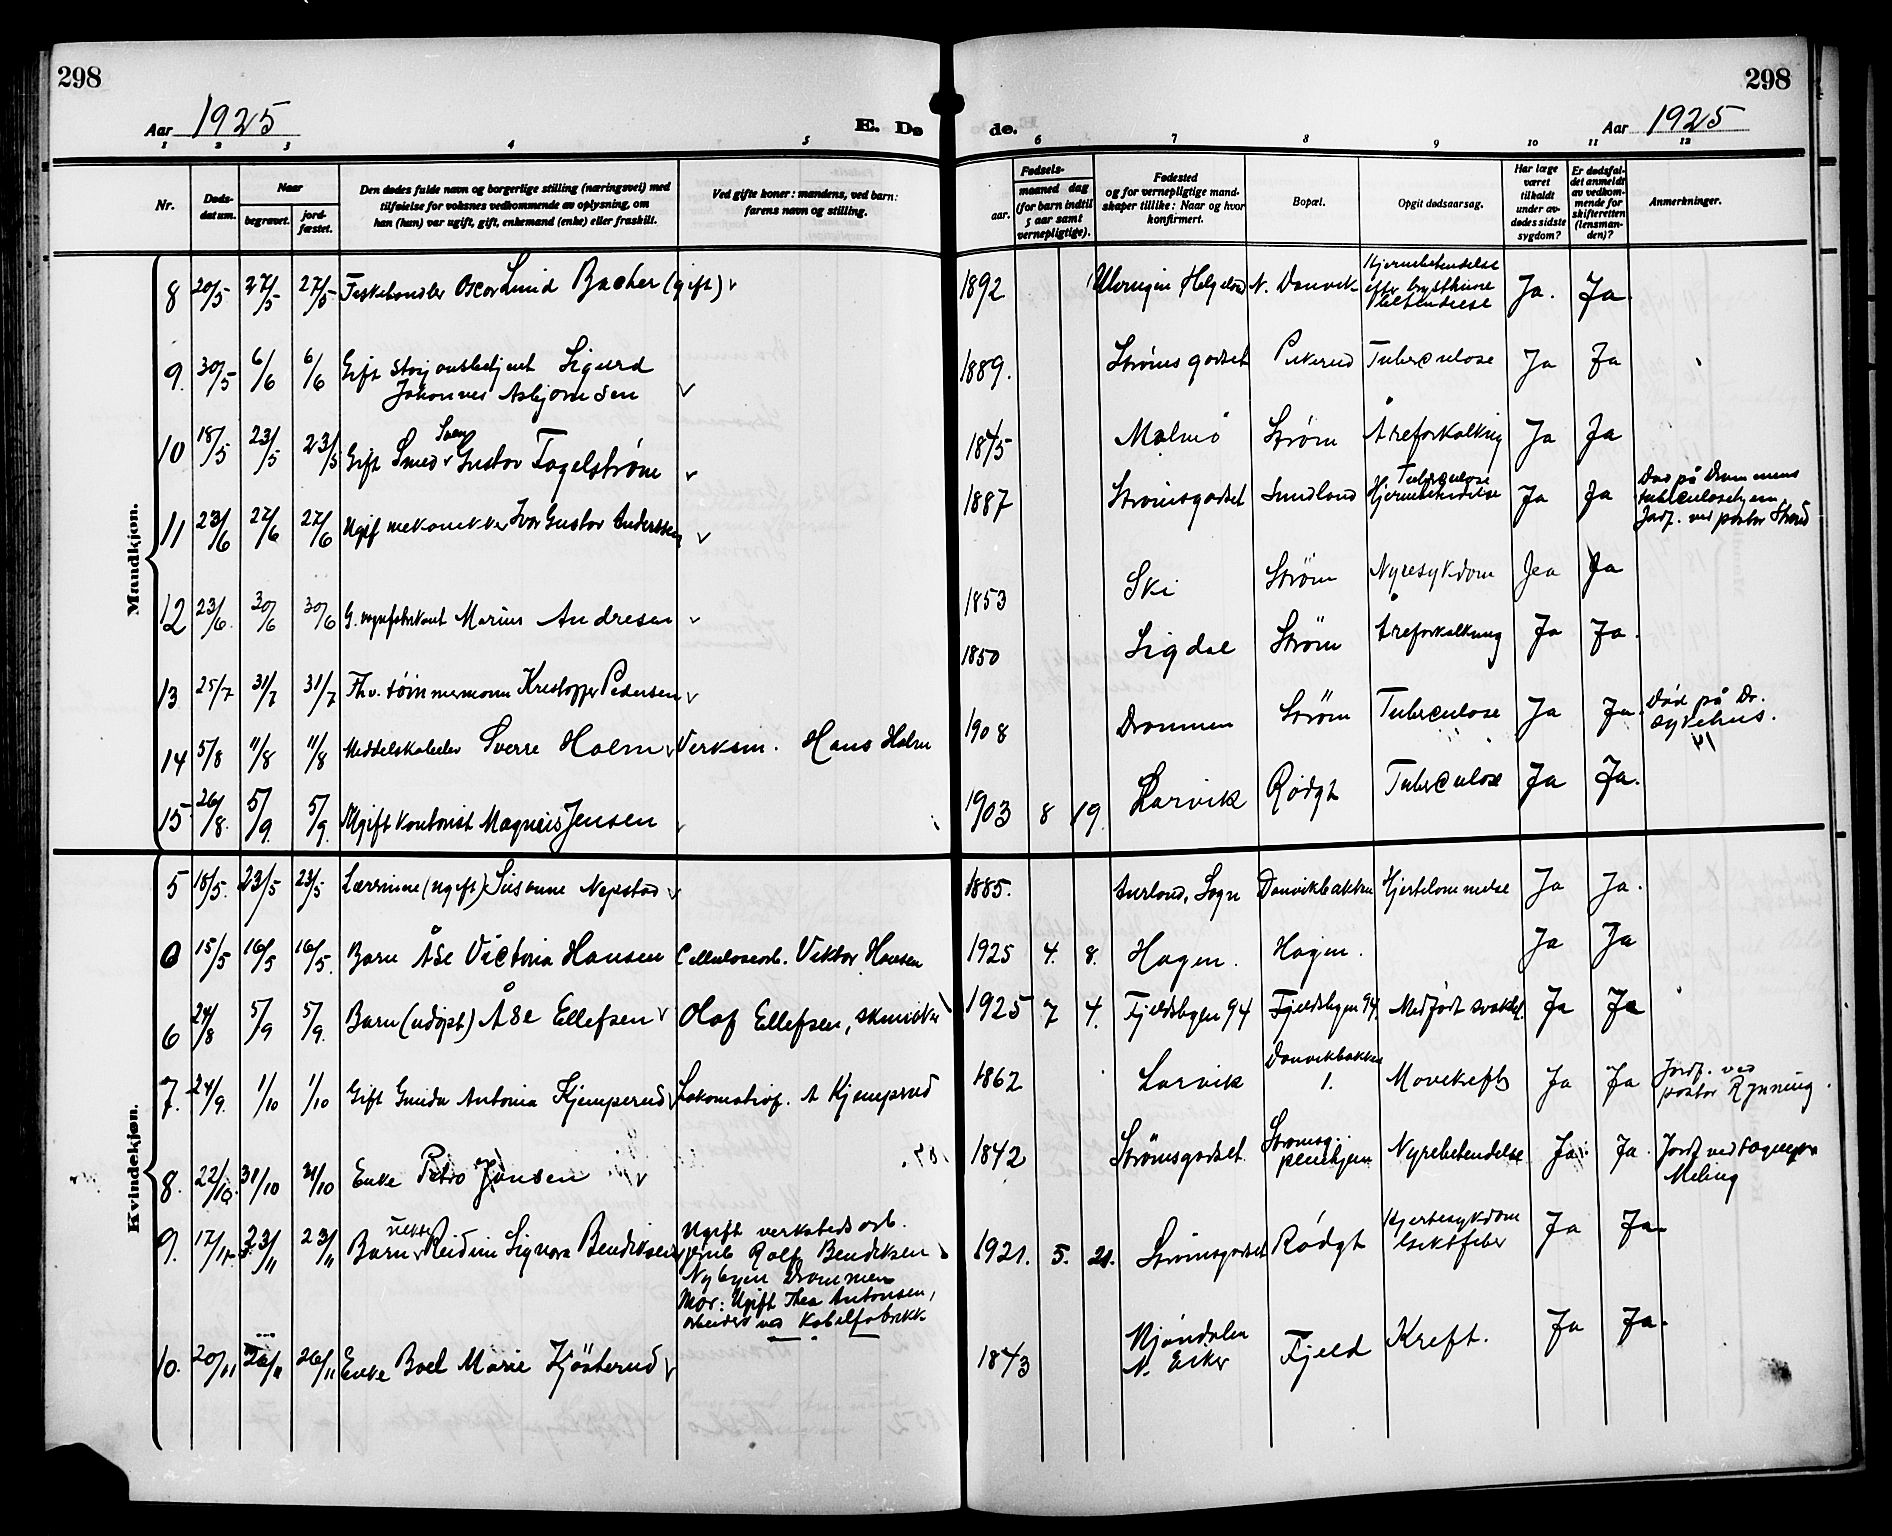 298
298
Aar 1925
E. Dø
de.
Aar 1925
1 2 3 4 5 6 7 8 9 10 11 12
Nr.
Døds-datum.
Naar
begravet.
jord-fæstet.
Den dødes fulde navn og borgerlige stilling (næringsvei) med
tilføielse for voksnes vedkommende av oplysning, om
han (hun) var ugift, gift, enkemand (enke) eller fraskilt.
Ved gifte koner: mandens, ved barn:
farens navn og stilling.
Fødsels-
aar.
maaned dag
(for barn indtil
5 aar samt
vernepligtige).
Fødested
og for vernepligtige mand-
skaper tillike: Naar og hvor
konfirmert.
Bopæl.
Opgit dødsaarsag.
Har læge
været
tilkaldt
under av-
dødes sidste
sygdom?
Er dødsfal-
det anmeldt
av vedkom-
mende for
skifteretten
(lensman-
den)?
Anmerkninger.
Mandkjøn.
8 20/5 27/5 27/5 Fiskehandler Oscar Bacher (gift) 1892 N. Danvik Hjernebetendelse
efter brysthinne
betendelse Ja. Ja.
9. 30/5 6/6 6/6 Gift Sigurd
Johannes Asbjørnsen 1889. Strømsgodset Tuberculose Ja Ja
10 18/5 23/5 23/5 Gift Smed Sven Gustav Fagelstrøm 1845 Malmø Strøm Åreforkalkning Ja Ja
11 23/6 27/6 27/6 Ugift mekanikker Ivar Gustav Anderssen 1887 Strømsgodset Sundland Tuberculose
Hjernebetendelse Ja Ja Død på Drammens
tuberculosehjem
Jordf. ved pastor Strand
12 23/6 30/6 30/6 G. vognfabrikant Marius Andresen 1853 Ski Strøm Nyresykdom Jea Ja
13 25/7 31/7 31/7 Fhv. tømmermann Kristoffer Pedersen 1850 Sigdal Strøm Åreforkalkning Ja Ja.
14 5/8 11/8 11/8 Middelskoleelev Sverre Holm Verksm. Hans Holm 1908 Drammen Strøm Tuberculose Ja Ja. Død på Dr.
sykehus.
15 26/8. 5/9. 5/9. Ugift kontorist Magnus Jensen 1903 8 19. Larvik Rødgt Tuberculose Ja Ja.
Kvindekjøn.
5 18/5. 23/5 23/5 Lærerinne (ugift) Susanne Nepstad 1885. Aurland, Sogn Danvikbakken Hjertelammelse Ja Ja.
0 15/5 16/5 16/5. Barn Åse Victoria Hansen Cellulosearb. Viktor Hansen 1925 4. 8. Hagen. Hagen. Ja Ja
6 24/8 5/9 5/9. Barn (udøpt) Åse Ellefsen Olaf Ellefsen, 1925 7 4. Fjeldsbygen 94 Fjeldsbygen 94. Medfødt svakhet. Ja Ja
7. 24/9. 1/10 1/10 Gift Gunda Antonia Kjemperud Lokomotivf. A Kjemperud 1862 Larvik Danvikbakken
1. Mavekreft Ja Ja Jordf. ved
pastor Rynning.
8. 22/10. 31/10 31/10 Enke Petra Jansen 1842 Strømsgodset Strømsg.
pleiehjem Nyrebetendelse Ja. Ja. Jordf. ved sognepr
Meling
9. 17/11. 23/11 23/11 Barn uekte Reidun Signora Bendiksen Ugift verkstedsarb.
Rolf Bendiksen
Nybyen Drammen
Mor: Ugift Thea Antonsen,
arbeider ved Kabelfabrikk 1921. 5. 21. Strømsgodset Rødgt Hjertesykdom
Giktfeber Ja Ja.
10. 20/11 26/11 26/11 Enke Boel Marie Kjösterud 1843 Mjøndalen
N. Eiker Fjeld Kreft. Ja Ja.